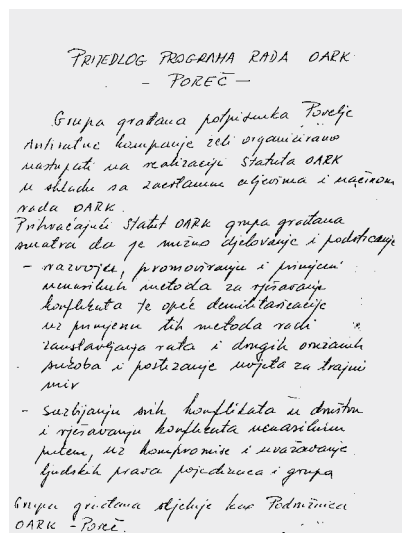 PRIJEDLOG PROGRAMA RADA OARK
- POREČ -
Grupa građana potpisnika Povelje
Antiratne kampanje želi organizirano
nastupati na realizaciji Statuta OARK
u skladu sa zacrtanim ciljevima i načinom
rada OARK.
Prihvaćajući Statut OARK grupa građana
smatra da je nužno djelovanje i podsticanje
- razvoju, promoviranju i primjeni
nenasilnih metoda za rješavanje
konflikata te opće demilitarizacije
uz primjenu tih metoda radi
zaustavljanja rata i drugih oružanih
sukoba i postizanje uvjeta za trajni
mir
- suzbijanju svih konflikata u društvu
i rješavanju konflikata nenasilnim
putem, uz kompromise i uvažavanje
ljudskih prava pojedinaca i grupa
Grupa građana djeluje kao Podružnica
OARK - Poreč.